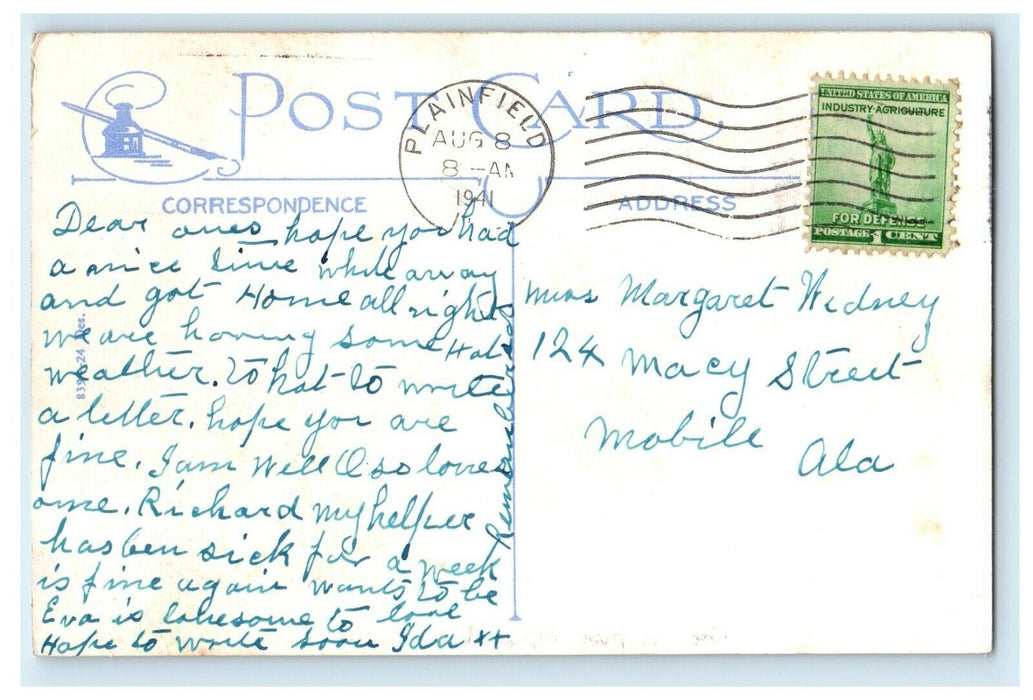 POST CARD
PLAINFIELD
AUG 8
8 - AM
1941
UNITED STATES OF AMERICA
INDUSTRY-AGRICULTURE
FOR DEFENSE
POSTAGE 1 CENT
CORRESPONDENCE
ADDRESS
Dear ones hope you had
a nice time while away
and got Home all right
we are having some Hot
weather. to hot to write
a letter. hope you are
fine. I am Well Also loved
one. Richard my helper
has ben sick for a week
is fine again wants to be
Eva is lonesome to love
Hope to write soon Ida xx
Miss Margaret Widney
124 Macy Street
Mobile
Ala